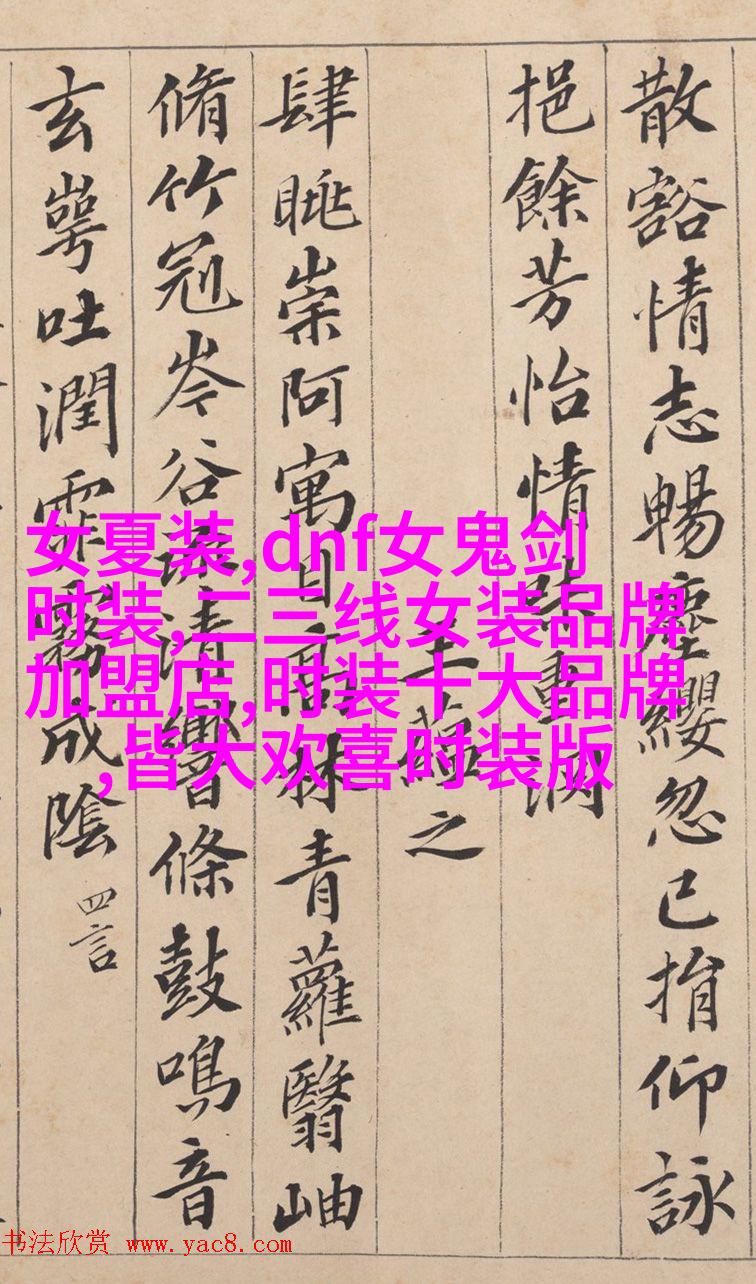 散豁情志暢塵纓忽已捐仰詠
挹餘芳怡情味重淵
王蘊之
肆眺崇阿寓目高林青蘿翳岫
脩竹冠岑谷流清響條鼓鳴音
玄崿吐潤霏霧成陰 四言
女夏装,dnf女鬼剑
时装,二三线女装品牌
加盟店,时装十大品牌
,皆大欢喜时装版
书法欣赏 www.yac8.com